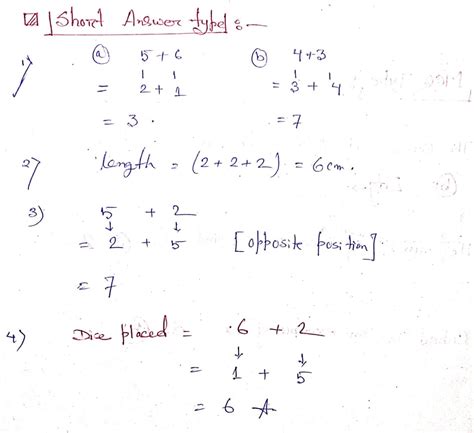 Short Answer type :-
1) (a) 5 + 6 (b) 4+3
= 2 + 1 = 3 + 4
= 3 . = 7
2) length = (2 + 2 + 2) = 6cm.
3) 5 + 2
= 2 + 5 [opposite position]
= 7
4) Dice placed = .6 + 2
= 1 + 5
= 6 A